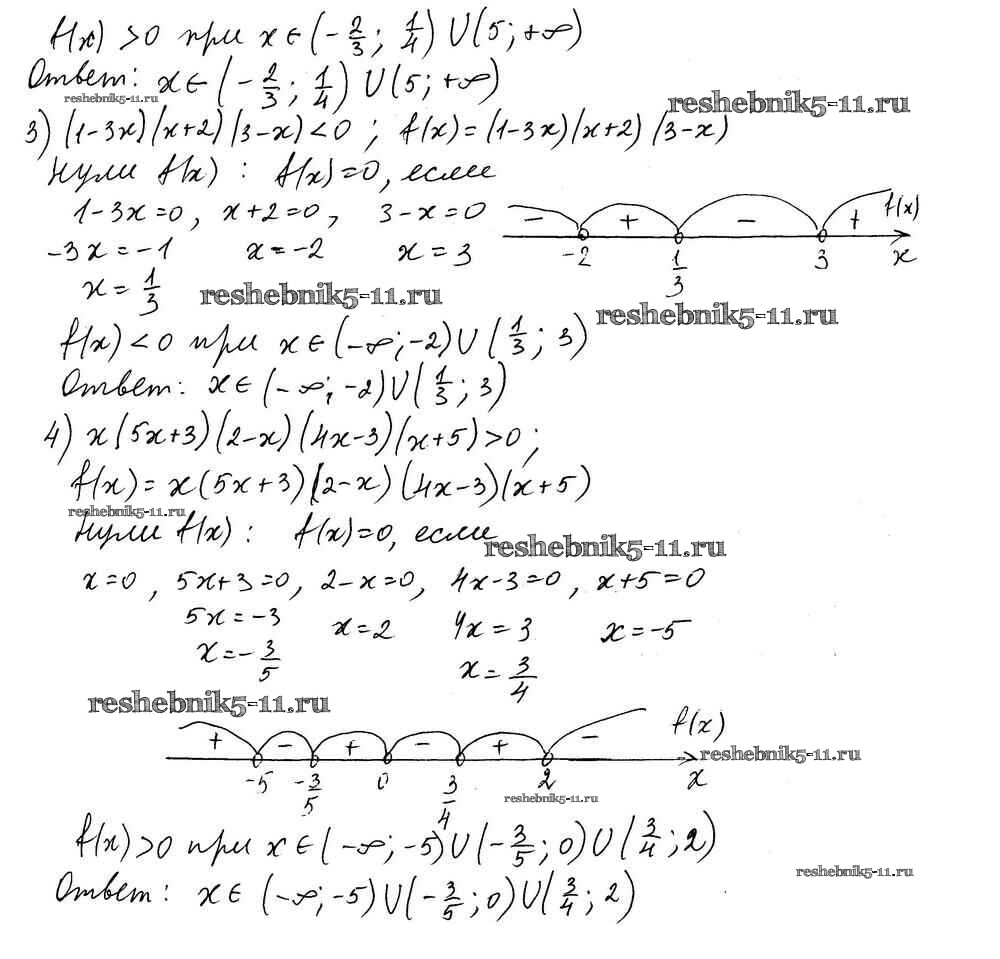 f(x) > 0 при x ∈ (-2/3; 1/4) ∪ (5; +∞)
Ответ: x ∈ (-2/3; 1/4) ∪ (5; +∞)
reshebnik5-11.ru
reshebnik5-11.ru
3) (1-3x)(x+2)(3-x) < 0; f(x) = (1-3x)(x+2)(3-x)
Нули f(x): f(x)=0, если
1-3x=0, x+2=0, 3-x=0
-3x=-1 x=-2 x=3
x=1/3
- + - + f(x)
-2 1/3 3 x
reshebnik5-11.ru
reshebnik5-11.ru
f(x) < 0 при x ∈ (-∞; -2) ∪ (1/3; 3)
Ответ: x ∈ (-∞; -2) ∪ (1/3; 3)
4) x(5x+3)(2-x)(4x-3)(x+5) > 0;
f(x) = x(5x+3)(2-x)(4x-3)(x+5)
reshebnik5-11.ru
Нули f(x): f(x)=0, если
reshebnik5-11.ru
x=0, 5x+3=0, 2-x=0, 4x-3=0, x+5=0
5x=-3 x=2 4x=3 x=-5
x=-3/5 x=3/4
reshebnik5-11.ru
+ - + - + - f(x)
reshebnik5-11.ru
-5 -3/5 0 3/4 2 x
reshebnik5-11.ru
f(x) > 0 при x ∈ (-∞; -5) ∪ (-3/5; 0) ∪ (3/4; 2)
reshebnik5-11.ru
Ответ: x ∈ (-∞; -5) ∪ (-3/5; 0) ∪ (3/4; 2)